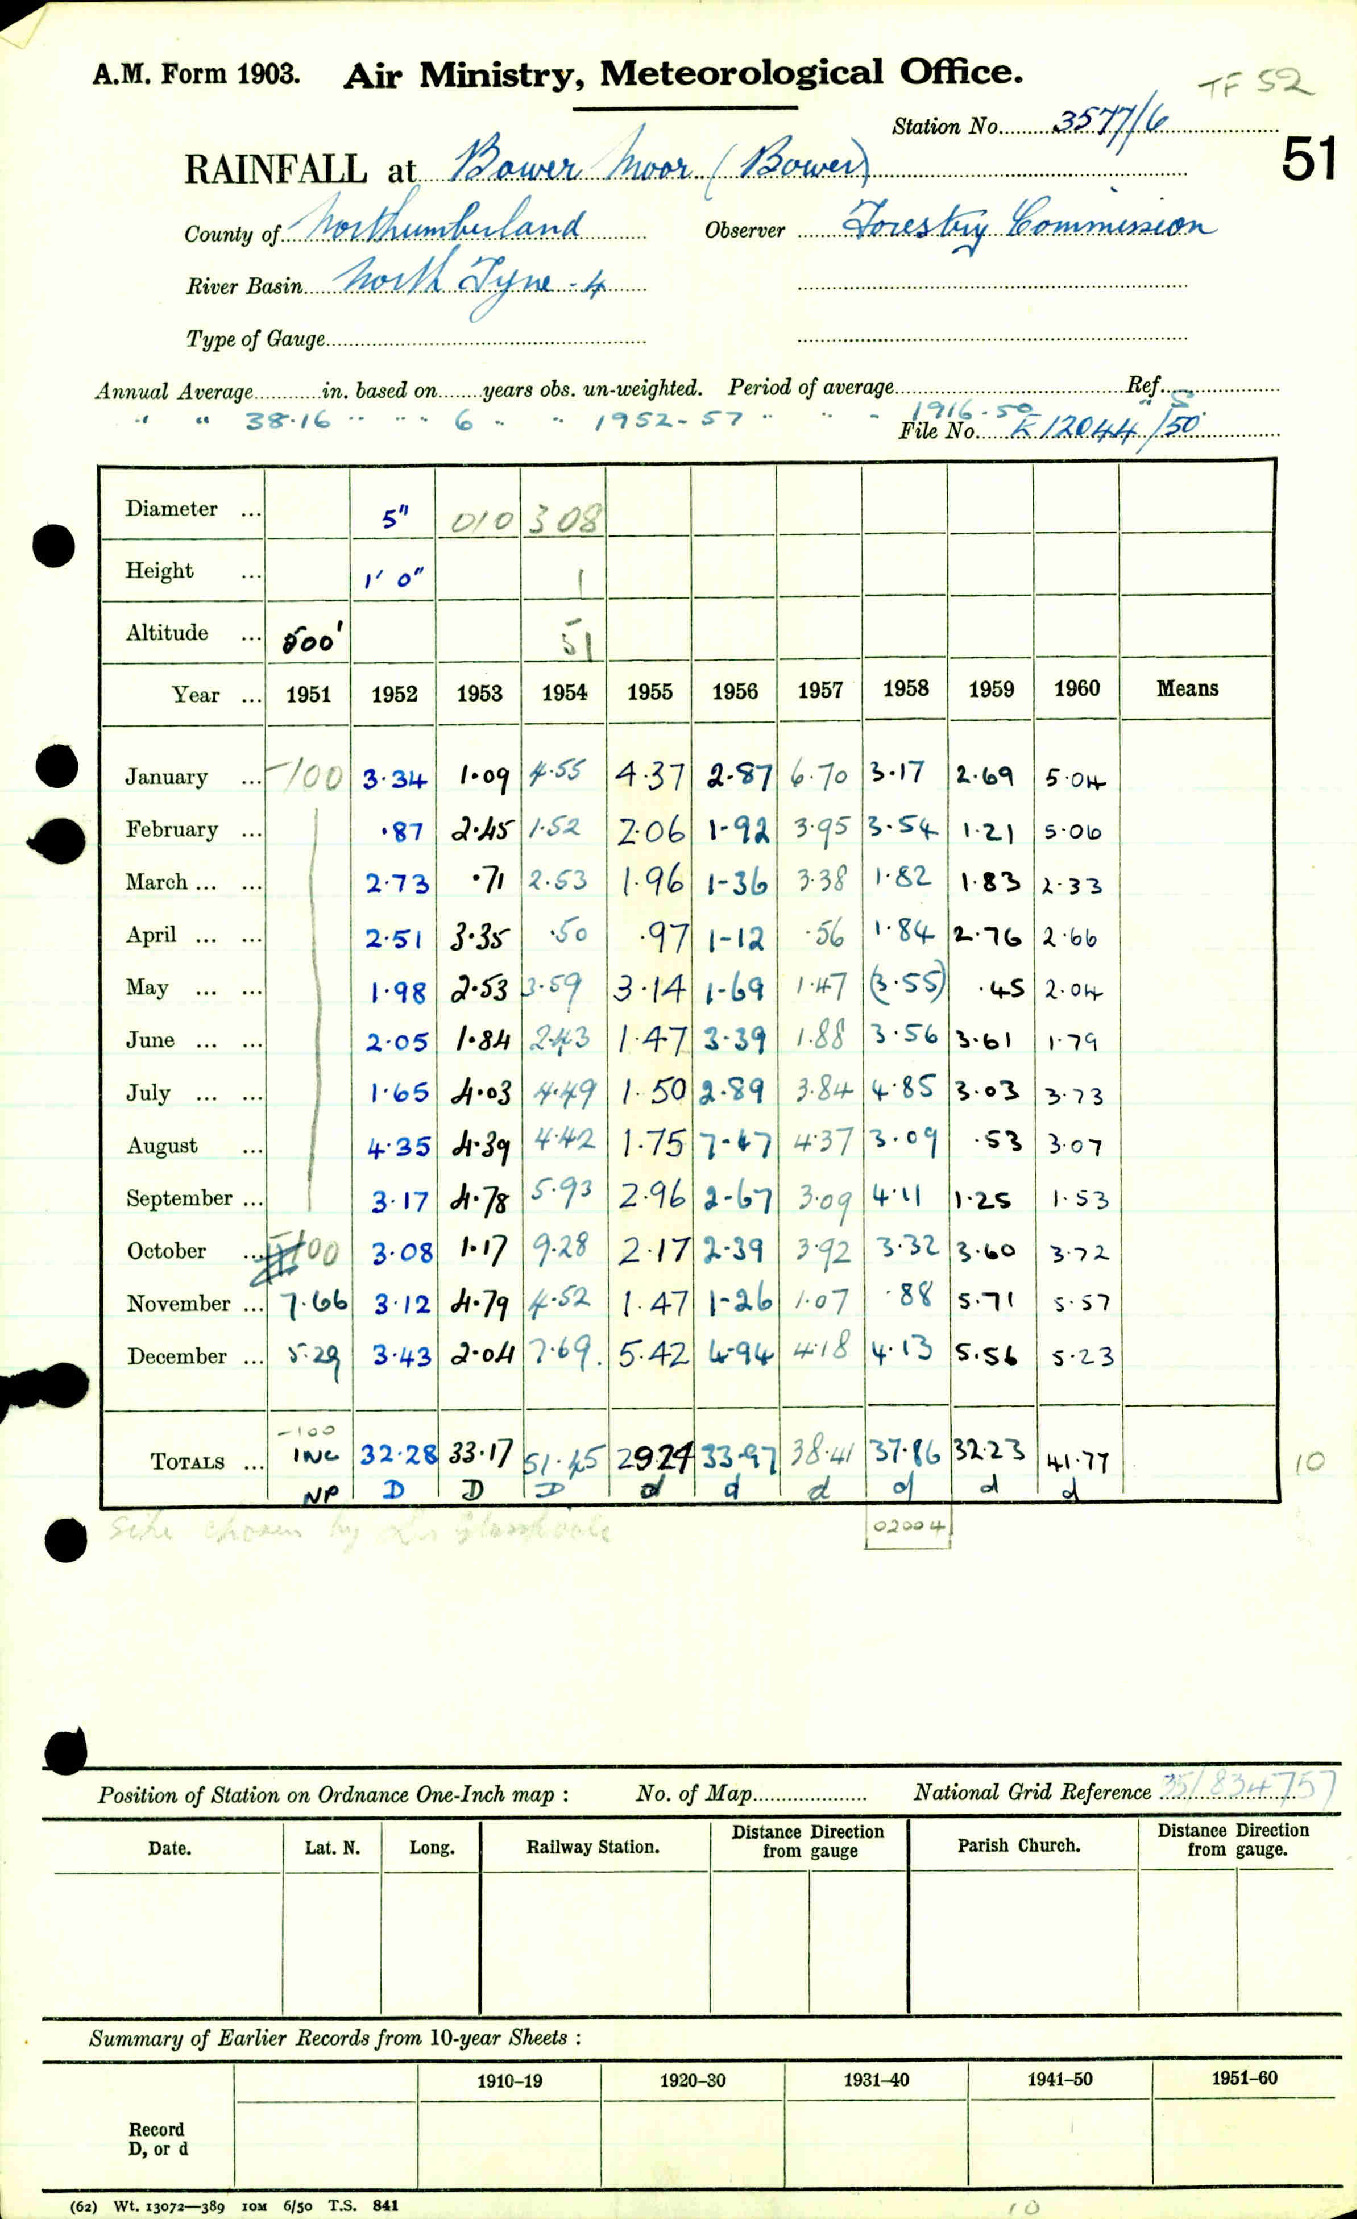 A.M. Form 1903. Air Ministry, Meteorological Office. TF 52
Station No. 3577/6
51
RAINFALL at Bower Moor (Bower)
County of Northumberland Observer Forestry Commission
River Basin North Tyne - 4
Type of Gauge
Annual Average in. based on years obs. un-weighted. Period of average Ref.
" " 38.16 " " " 6 " " 1952-57 " " " 1916-50 " S
File No. E 12044/50
Diameter ... 5" 010 308
Height ... 1' 0" 1
Altitude ... 800' 51
Year ... 1951 1952 1953 1954 1955 1956 1957 1958 1959 1960 Means
January ... -100 3.34 1.09 4.55 4.37 2.87 6.70 3.17 2.69 5.04
February ... .87 2.45 1.52 2.06 1.92 3.95 3.54 1.21 5.06
March ... ... 2.73 .71 2.53 1.96 1.36 3.38 1.82 1.83 2.33
April ... ... 2.51 3.35 .50 .97 1.12 .56 1.84 2.76 2.66
May ... ... 1.98 2.53 3.59 3.14 1.69 1.47 (3.55) .45 2.04
June ... ... 2.05 1.84 2.43 1.47 3.39 1.88 3.56 3.61 1.79
July ... ... 1.65 4.03 4.49 1.50 2.89 3.84 4.85 3.03 3.73
August ... 4.35 4.39 4.42 1.75 7.47 4.37 3.09 .53 3.07
September ... 3.17 4.78 5.93 2.96 2.67 3.09 4.11 1.25 1.53
October ... -100 3.08 1.17 9.28 2.17 2.39 3.92 3.32 3.60 3.72
November ... 7.66 3.12 4.79 4.52 1.47 1.26 1.07 .88 5.71 5.57
December ... 5.29 3.43 2.04 7.69 5.42 4.94 4.18 4.13 5.56 5.23
-100
TOTALS ... INC 32.28 33.17 51.45 29.24 33.97 38.41 37.86 32.23 41.77 10
NP D D D d d d d d d
Site chosen by Dr Glasspoole 02004
Position of Station on Ordnance One-Inch map : No. of Map National Grid Reference 35/834757
Date. Lat. N. Long. Railway Station. Distance Direction from gauge Parish Church. Distance Direction from gauge.
Summary of Earlier Records from 10-year Sheets :
1910–19 1920–30 1931–40 1941–50 1951–60
Record
D, or d
(62) Wt. 13072—389 10M 6/50 T.S. 841 10